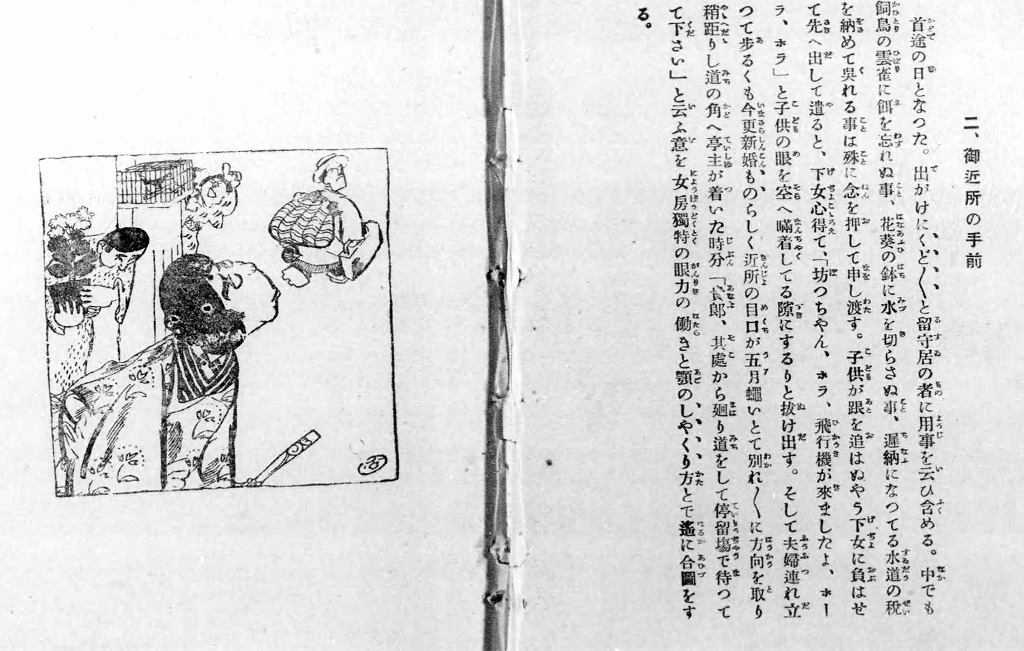 二、御近所の手前
首途の日となつた。出がけにくど〱と留守居の者に用事を云ひ含める。中でも
飼鳥の雲雀に餌を忘れぬ事、花葵の鉢に水を切らさぬ事、遅納になつてる水道の税
を納めて呉れる事は殊に念を押して申し渡す。子供が跟を追はぬやう下女に負はせ
て先へ出して遣ると、下女心得て、「坊つちやん、ホラ、飛行機が來ましたよ、ホー
ラ、ホラ」と子供の眼を空へ瞞着してる隙にするりと抜け出す。そして夫婦連れ立
つて歩るくも今更新婚ものらしく近所の目口が五月蠅いとて別れ〱に方向を取り
稍距りし道の角へ亭主が着いた時分「貴郎、其處から廻り道をして停留場で待つて
て下さい」と云ふ意を女房獨特の眼力の働きと顎のしやくり方とで遙に合圖をす
る。